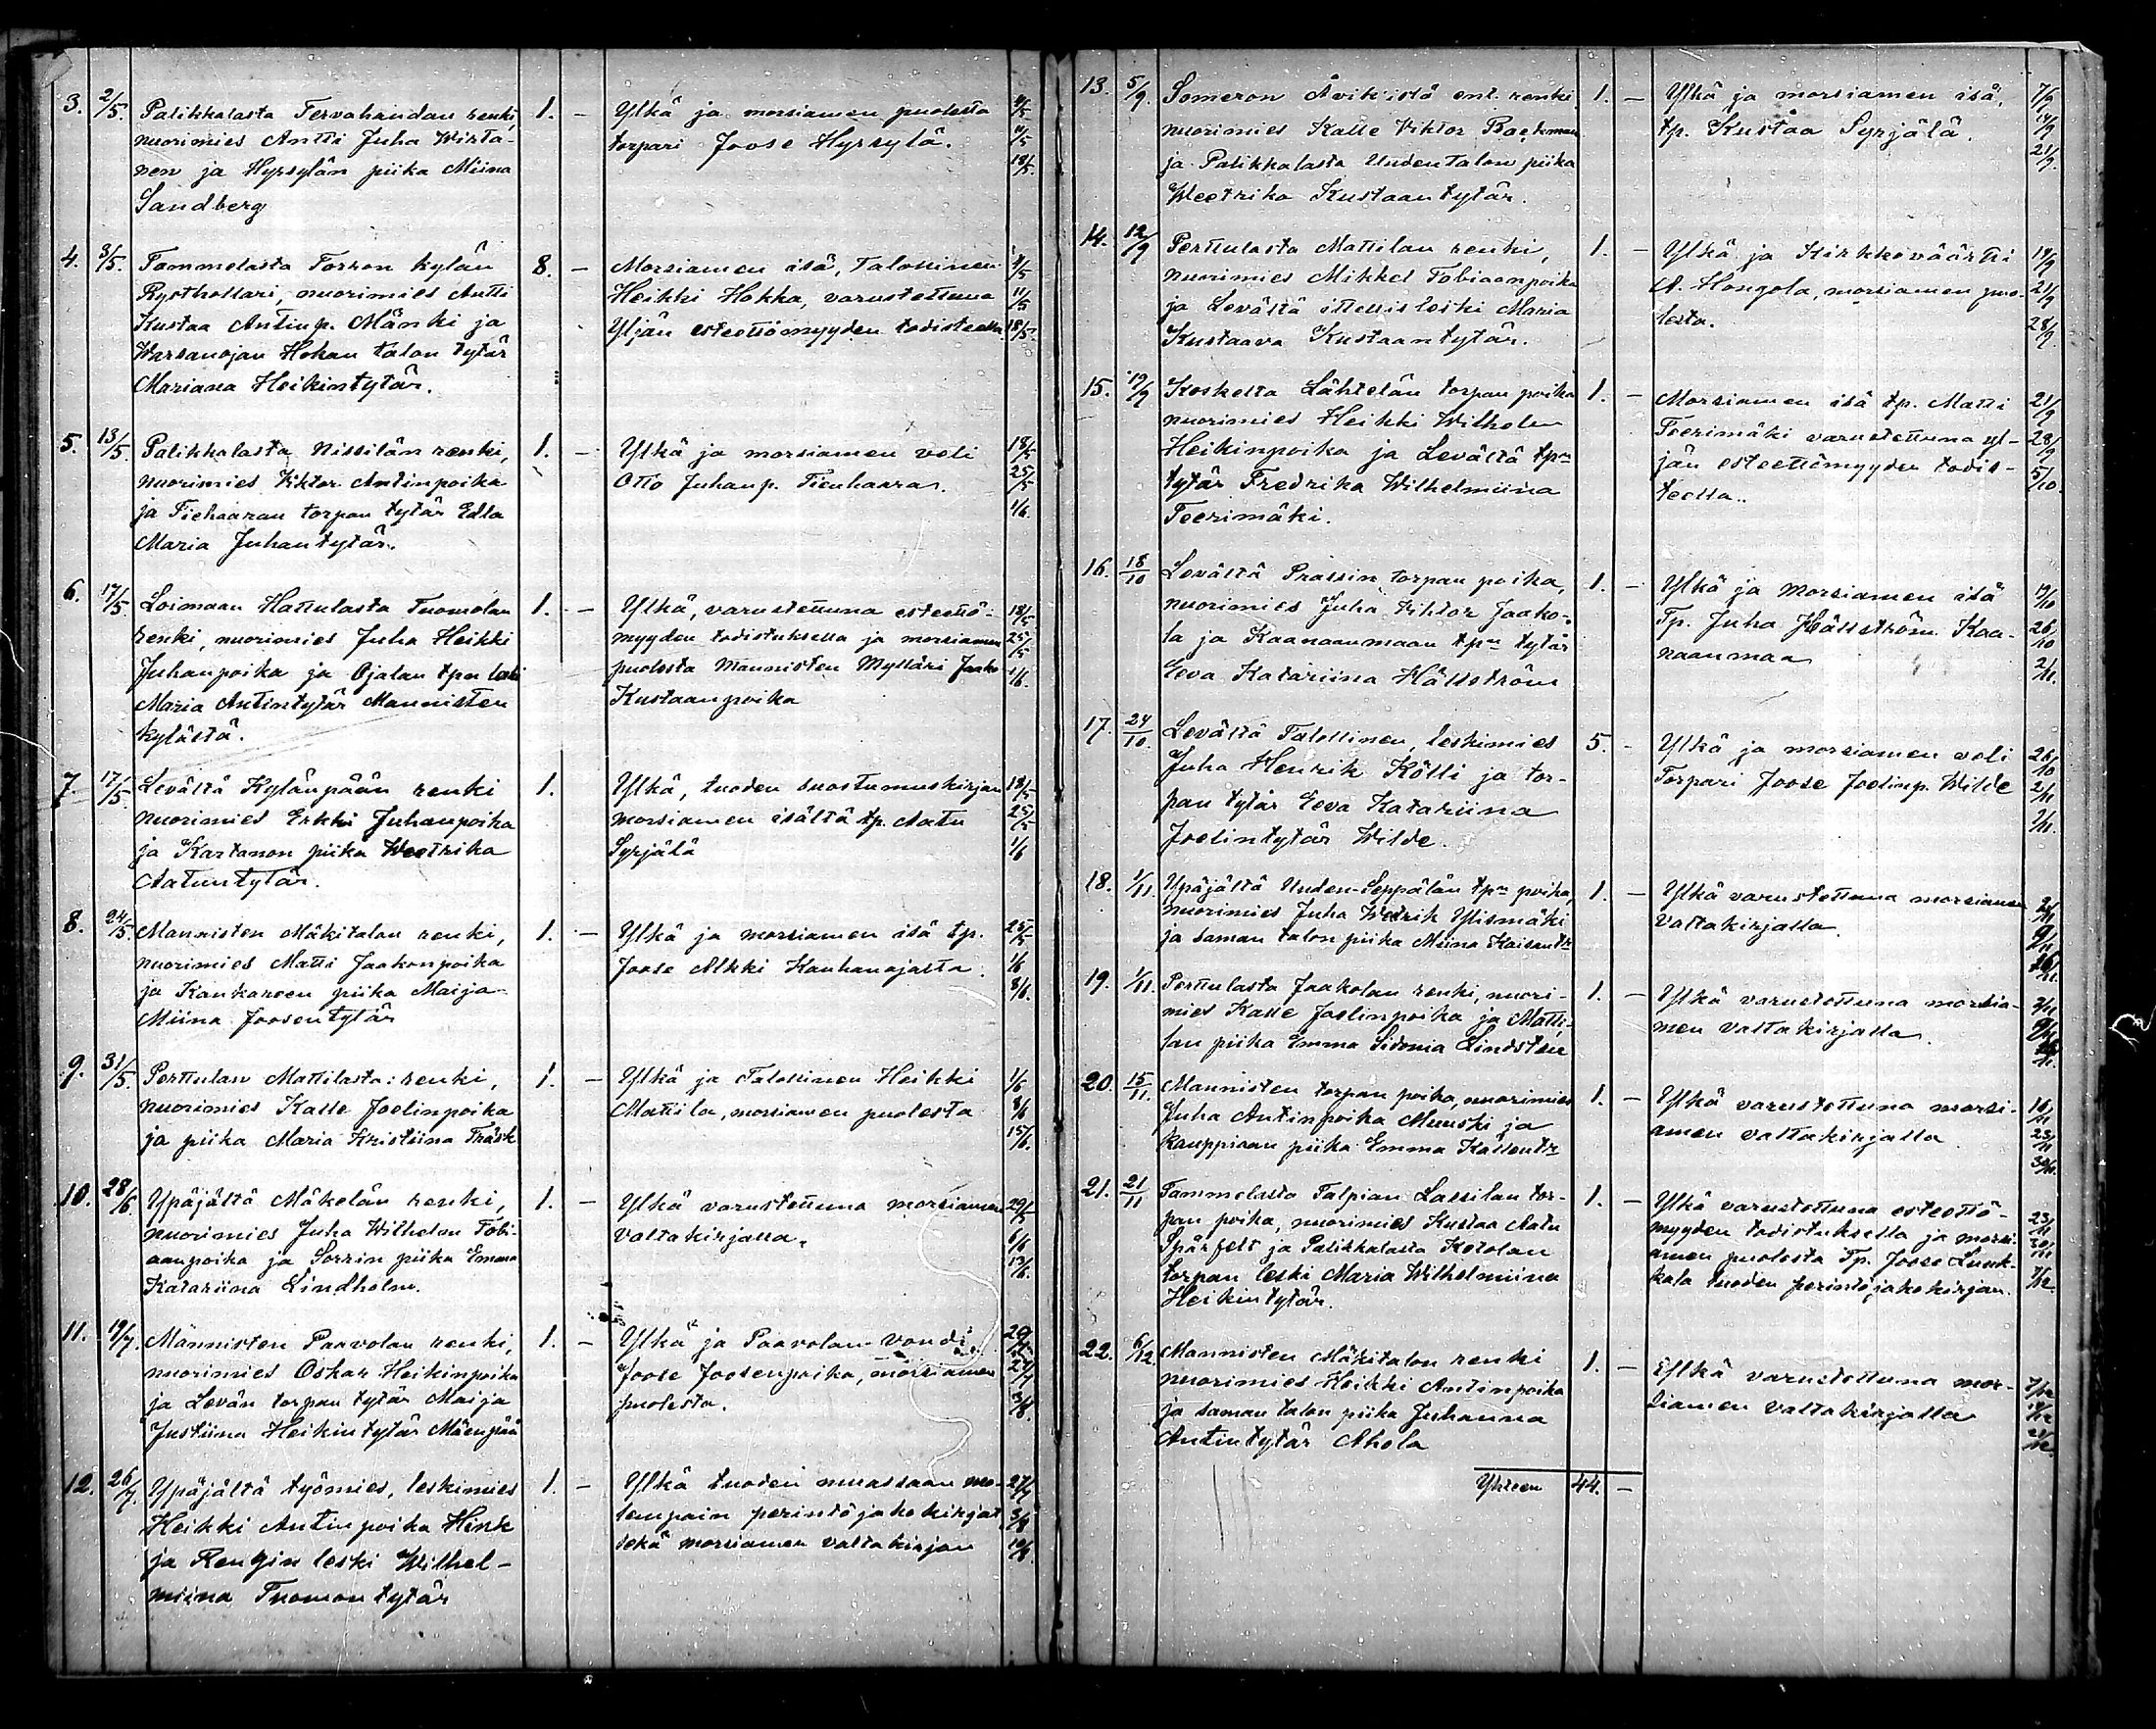 3. 2/5. Palikkalasta Tervahaudan renki, 1. — Ylkä ja morsiamen puolesta 4/5
nuorimies Antti Juha Wirta- torpari Joose Hyrsylä. 11/5
nen ja Hyrsylän piika Miina 18/5.
Sandberg
4. 3/5. Tammelasta Torron kylän 8. — Morsiamen isä, Talollinen 4/5
Rysthollari, nuorimies Antti Heikki Hokka, varustettuna 11/5
Kustaa Antinp. Mänki ja Yljän esteettömyyden todisteella 18/5.
Warsanojan Hokan talon tytär
Mariana Heikintytär.
5. 13/5. Palikkalasta Nissilän renki, 1. — Ylkä ja morsiamen veli 18/5
nuorimies Viktor Antinpoika Otto Juhanp. Tienhaara. 25/5
ja Tiehaaran torpan tytär Edla 1/6.
Maria Juhantytär.
6. 17/5. Loimaan Hattulasta Tuomolan 1. — Ylkä, varustettuna esteettö- 18/5.
renki, nuorimies Juha Heikki myyden todistuksella ja morsiamen 25/5
Juhanpoika ja Ojalan tpn leski puolesta Mannisten Mylläri Jaako 1/6.
Maria Antintytär Mannisten Kustaanpoika
kylästä.
7. 17/5. Levältä Kylänpään renki 1. Ylkä, tuoden suostumuskirjan 18/5
nuorimies Erkki Juhanpoika morsiamen isältä tp. Aatu 25/5
ja Kartanon piika Weetrika Syrjälä 1/6
Aatuntytär.
8. 24/5. Mannisten Mäkitalon renki, 1. — Ylkä ja morsiamen isä tp. 25/5
nuorimies Matti Jaakonpoika Joose Alkki Kauhanojalta. 1/6
ja Kankareen piika Maija- 8/6.
Miina Joosentytär
9. 31/5. Perttulan Mattilasta: renki, 1. — Ylkä ja Talollinen Heikki 1/6
nuorimies Kalle Joelinpoika Mattila, morsiamen puolesta 8/6
ja piika Maria Kristiina Träsk 15/6.
10. 28/6. Ypäjältä Mäkelän renki, 1. — Ylkä varustettuna morsiamen 29/6
nuorimies Juha Wilhelm Tobi- valtakirjalla. 6/7
aanpoika ja Sorrin piika Emma
Katariina Lindholm.
11. 19/7. Männisten Paavolan renki, 1. — Ylkä ja Paavolan voudi 20/7
nuorimies Oskar Heikinpoika Joose Joosenpoika, morsiamen 27/7
ja Levän torpan tytär Maija puolesta. 3/8.
Justiina Heikintytär Mäenpää
12. 26/7. Ypäjältä työmies, leskimies 1. — Ylkä tuoden muassaan mo- 27/7
Heikki Antinpoika Hink lempain perintöjakokirjat 3/8
ja Rengin leski Wilhel- sekä morsiamen valtakirjan 10/8
miina Tuomontytär
13. 5/9. Someron Åvikistä ent. renki, 1. — Ylkä ja morsiamen isä, 7/9
nuorimies Kalle Viktor Backman tp. Kustaa Syrjälä. 14/9
ja Palikkalasta Uudentalon piika 21/9.
Weetrika Kustaantytär.
14. 12/9 Perttulasta Mattilan renki, 1. — Ylkä ja Kirkkoväärtti 14/9
nuorimies Mikkel Tobiaanpoika A. Hongola, morsiamen puo- 21/9
ja Levältä ittellisleski Maria lesta. 28/9
Kustaava Kustaantytär.
15. 19/9 Koskelta Lähtelän torpan poika 1. — Morsiamen isä tp. Matti 21/9
nuorimies Heikki Wilhelm Teerimäki varustettuna yl- 28/9
Heikinpoika ja Levältä tpn jän esteettömyyden todis- 5/10.
tytär Fredrika Wilhelmiina teella.
Teerimäki.
16. 18/10 Levältä Prassin torpan poika, 1. — Ylkä ja Morsiamen isä 19/10
nuorimies Juha Viktor Jaako- Tp. Juha Hällström Kaa- 26/10
la ja Kaanaanmaan tpn tytär naanmaa 2/11.
Eeva Katariina Hällström
17. 24/10. Levältä Talollinen, leskimies 5. - Ylkä ja morsiamen veli 26/10
Juha Henrik Kölli ja tor- Torpari Joose Joelinp. Wilde 2/11
pan tytär Eeva Katariina
Joelintytär Wilde.
18. 1/11. Ypäjältä Uuden-Seppälän tpn poika, 1. — Ylkä varustettuna morsiamen 2/11
nuorimies Juha Wetrik Ylismäki valtakirjalla. 9/11
ja saman talon piika Miina Kaisantr 16/11.
19. 1/11. Perttulasta Jaakolan renki, nuori- 1. — Ylkä varustettuna morsia- 2/11
mies Kalle Joelinpoika ja Matti- men valtakirjalla. 9/11
lan piika Emma Sidonia Lindsten
20. 15/11. Mannisten torpan poika, nuorimies 1. — Ylkä varustettuna morsi- 16/11
Juha Antinpoika Muuski ja amen valtakirjalla 23/11
kauppiaan piika Emma Kallentr 30/11.
21. 21/11 Tammelasta Talpian Lassilan tor- 1. — Ylkä varustettuna esteettö- 23/11
pan poika, nuorimies Kustaa Aatu myyden todistuksella ja morsi- 30/11
Spärfelt ja Palikkalasta Ketolan amen puolesta Tp. Joose Lunk- 7/12.
torpan leski Maria Wilhelmiina kala tuoden perintöjakokirjan.
Heikintytär.
22. 6/12. Mannisten Mäkitalon renki 1. — Ylkä varustettuna mor- 7/12
nuorimies Heikki Antinpoika siamen valtakirjalla 14/12
ja saman talon piika Juhanna 21/12.
Antintytär Ahola
Yhteen 44. —